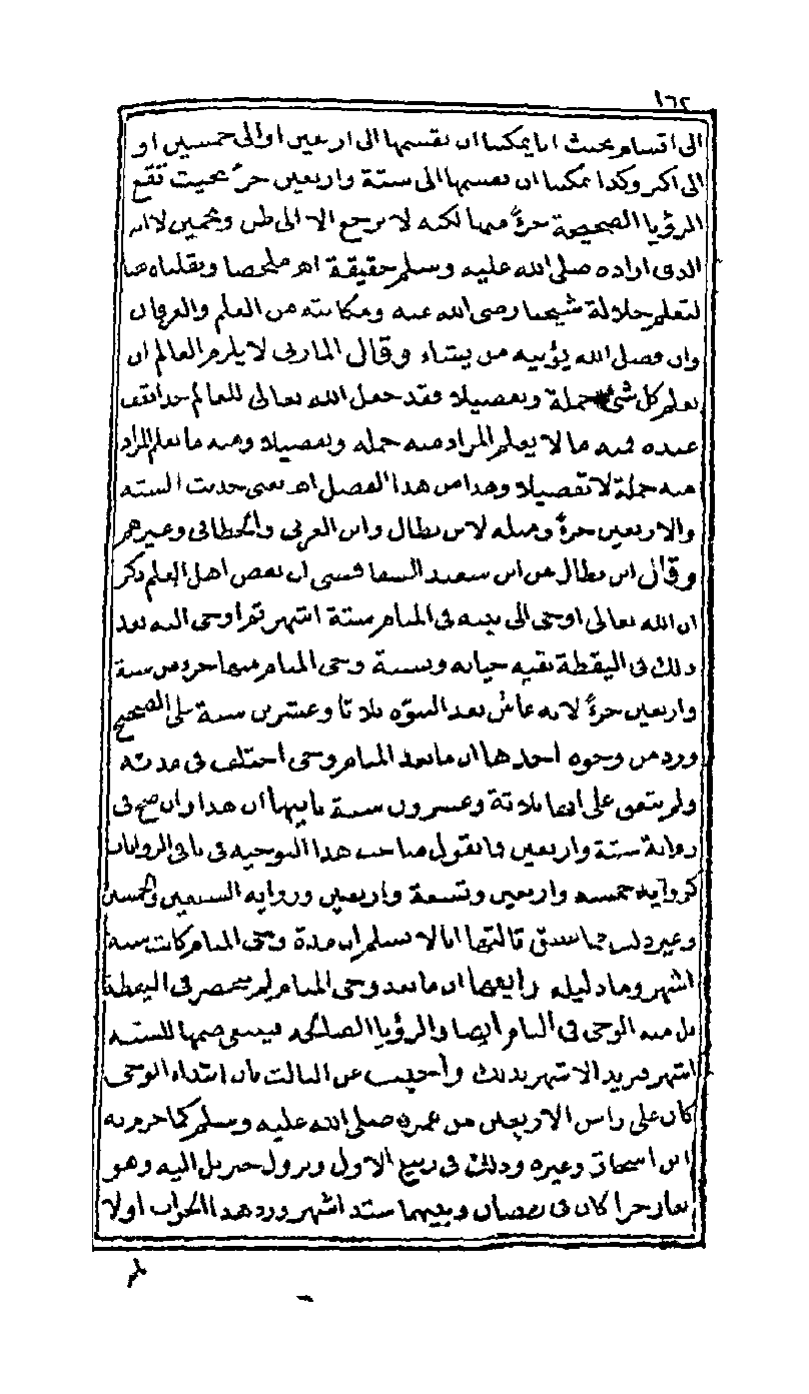 ١٦٢
الى اقسام بحيث انا يمكننا ان نقسمها الى اربعين او الى خمسين او
الى اكثر وكذا يمكننا ان نقسمها الى ستة واربعين جزءً بحيث تقع
الرؤيا الصحيحة جزءً منها لكنه لا يرجع الا الى ظن وتخمين لا انه
الذى اراده صلى الله عليه وسلم حقيقة اهـ ملخصا ونقلناه هنا
لتعلم جلالة شيخنا رضى الله عنه ومكانته من العلم والعرفان
وان فضل الله يؤتيه من يشاء وقال المازنى لا يلزم العالم ان
يعلم كل شئ جملة وتفصيلا فقد جعل الله تعالى للعالم حدا تقف
عنده فمنه ما لا يعلم المراد منه جملة وتفصيلا ومنه ما نعلم المراد
منه جملة لا تفصيلا وهذا من هذا الفصل اهـ يعنى حديث الستة
والاربعين جزءً ومثله لابن بطال وابن العربى والخطابى وغيرهم
وقال ابن بطال عن ابن سعيد السفاقسى ان بعض اهل العلم ذكر
ان الله تعالى اوحى الى نبيه فى المنام ستة اشهر ثم اوحى اليه بعد
ذلك فى اليقظة بقية حياته ونسبة وحى المنام منها جزء من ستة
واربعين جزءً لانه عاش بعد النبوّه ثلاثا وعشرين سنة على الصحيح
ورد من وجوه احدها ان ما بعد المنام وحى اختلف فى مدته
ولم يتفق على انها ثلاثة وعشرون سنة ثانيها ان هذا وان صح فى
رواية ستة واربعين فما يقول صاحب هذا التوجيه فى باقى الروايات
كرواية خمسه واربعين وتسعة واربعين ورواية السبعين والخمسين
وغير ذلك مما سبق ثالثها انا لا نسلم ان مدة وحى المنام كانت ستة
اشهر وما دليله رابعها ان ما بعد وحى المنام لم ينحصر فى اليقظة
بل منه الوحى فى المنام ايضا والرؤيا الصالحه فينبغى ضمها للستة
اشهر فيزيد الاشهر بذلك وأجيب عن الثالث بان ابتداء الوحى
كان على راس الاربعين من عمره صلى الله عليه وسلم كما جزم به
ابن اسحاق وغيره وذلك فى ربيع الاول ونزول جبريل اليه وهو
بغار حرا كان فى رمضان وبينهما ستة اشهر ورد هذا الجواب اولا